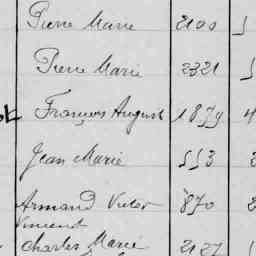 Pierre Marie 2100
Pierre Marie 2321
François August 1879 4
Jean Marie 553
Armand Victor 870 2
Vincent
Charles Marie 2127